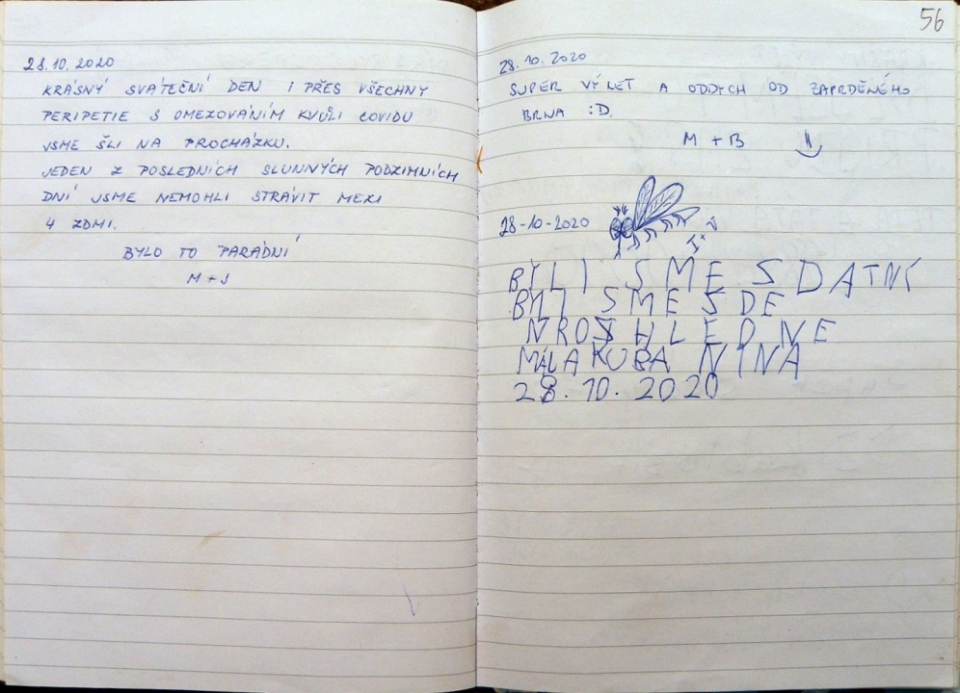 28.10.2020
KRÁSNÝ SVÁTEČNÍ DEN I PŘES VŠECHNY
PERIPETIE S OMEZOVÁNÍM KVŮLI COVIDU
JSME ŠLI NA PROCHÁZKU.
JEDEN Z POSLEDNÍCH SLUNNÝCH PODZIMNÍCH
DNÍ JSME NEMOHLI STRÁVIT MEZI
4 ZDMI.
BYLO TO PARÁDNÍ
M + J
56
28.10.2020
SUPER VÝLET A ODDYCH OD ZAPRDĚNÉHO
BRNA :D.
M + B
28-10-2020
BYLI SME SDATNÍ
BYLI SME SDE
NROSHLEDNE
MÁLA KUBA NINA
28.10.2020